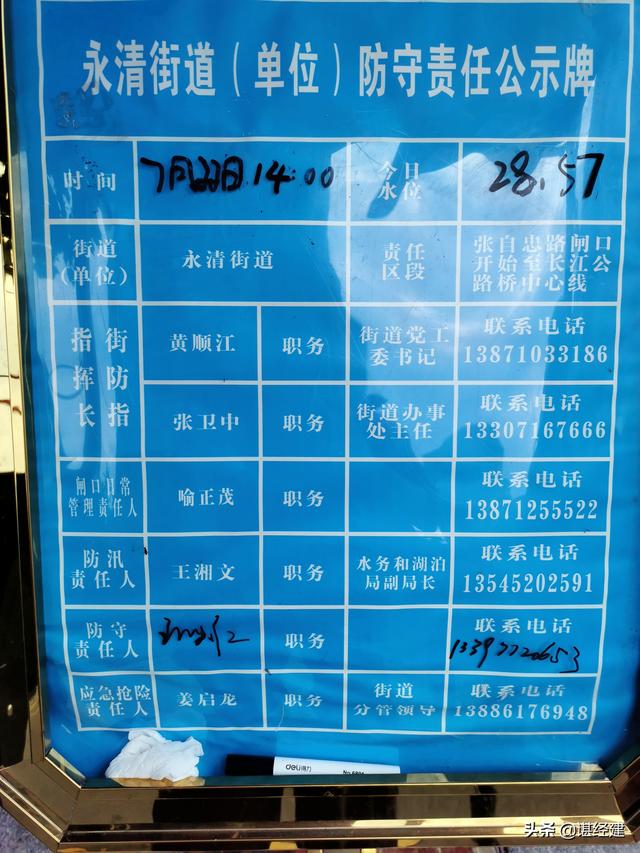 永清街道(单位)防守责任公示牌
时间 7月22日14:00 今日水位 28.57
街道(单位) 永清街道 责任区段 张自忠路闸口开始至长江公路桥中心线
街防指指挥长 黄顺江 职务 街道党工委书记 联系电话 13871033186
张卫中 职务 街道办事处主任 联系电话 13307167666
闸口日常管理责任人 喻正茂 职务 联系电话 13871255522
防汛责任人 王湘文 职务 水务和湖泊局副局长 联系电话 13545202591
防守责任人 职务 联系电话 13397720653
应急抢险责任人 姜启龙 职务 街道分管领导 联系电话 13886176948
deli得力
头条 @谌经建